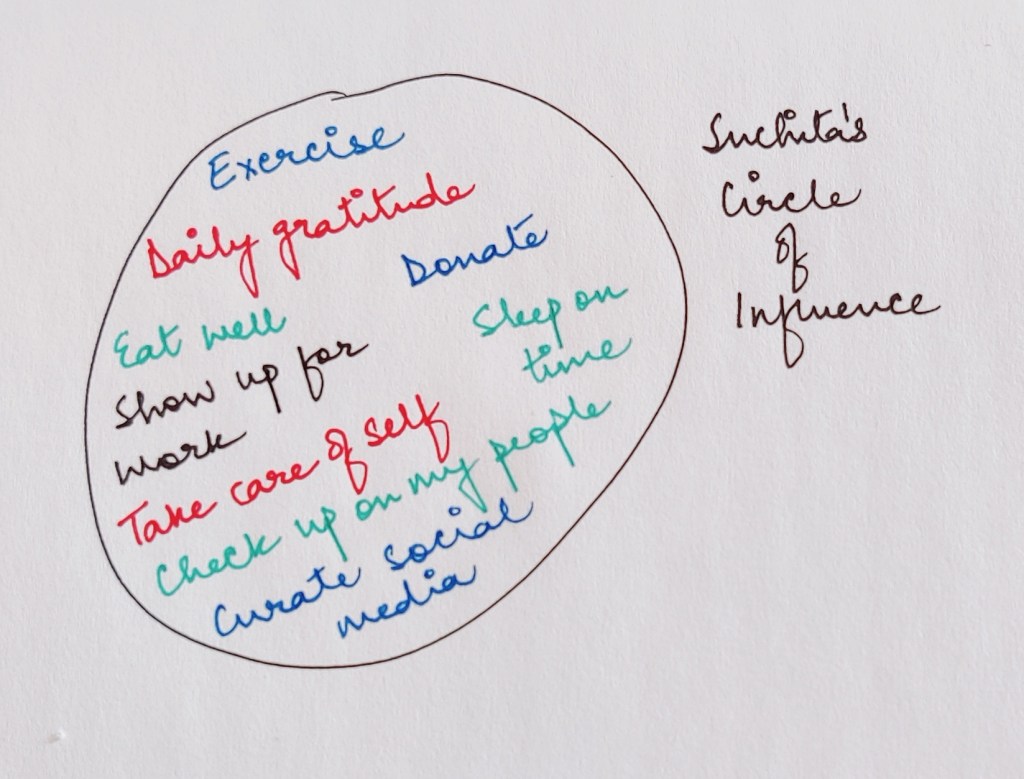 Exercise
Daily gratitude
Donate
Eat well
Sleep on
time
Show up for
work
Take care of self
Check up on my people
Curate social
media
Suchita's
Circle
of
Influence